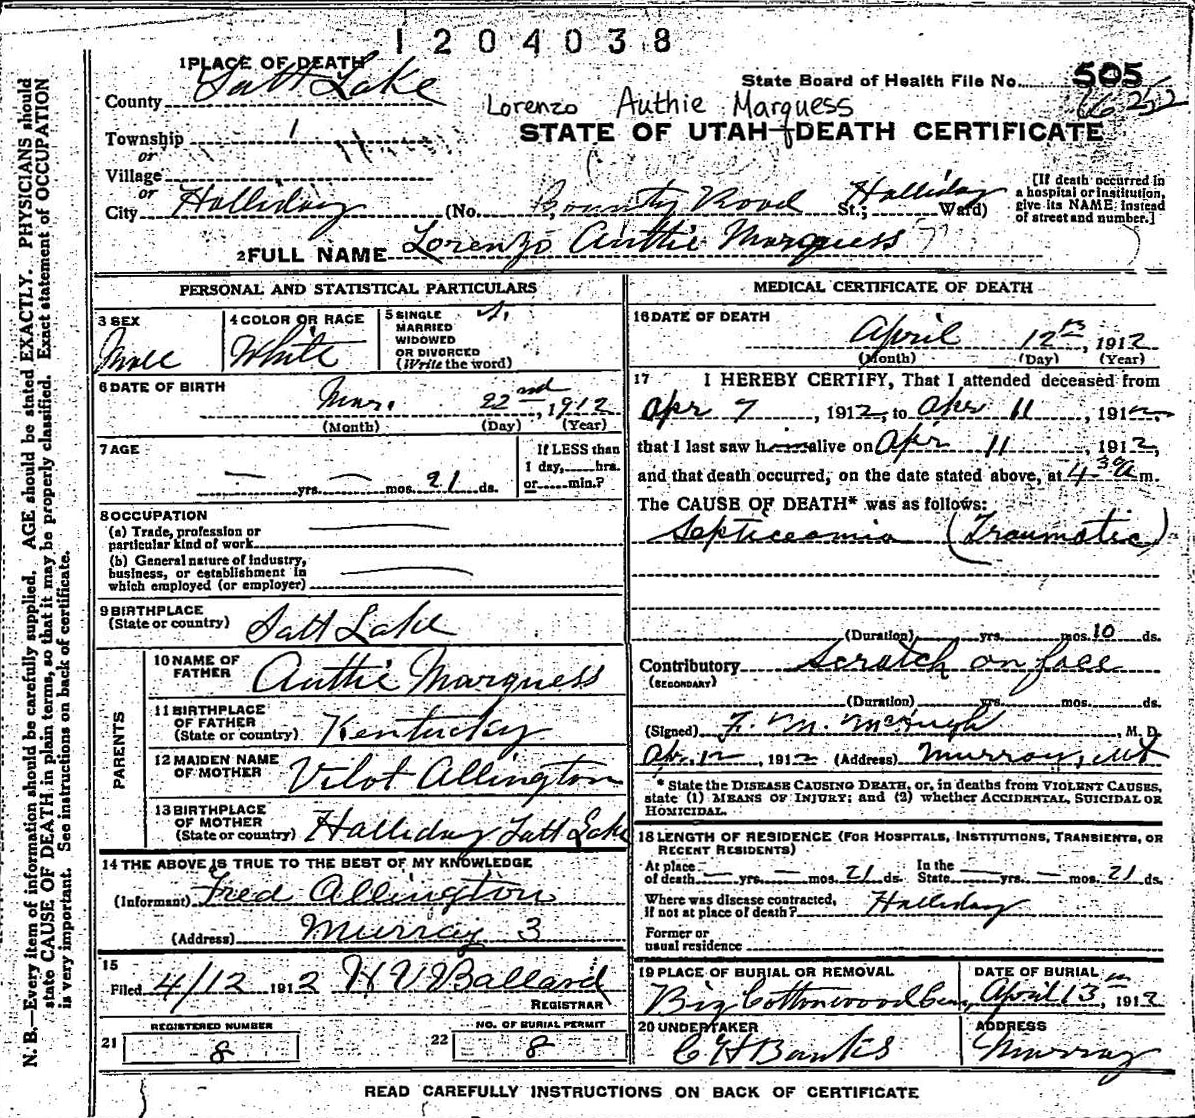 1204038
1 PLACE OF DEATH
County Salt Lake
State Board of Health File No. 505
Lorenzo Authie Marquess
Township 1
STATE OF UTAH—DEATH CERTIFICATE
or
Village
or
City Halliday (No. County Road St.; Halliday Ward)
[If death occurred in
a hospital or institution,
give its NAME instead
of street and number.]
2 FULL NAME Lorenzo Authie Marquess
PERSONAL AND STATISTICAL PARTICULARS
3 SEX
Male
4 COLOR OR RACE
White
5 SINGLE
MARRIED
WIDOWED
OR DIVORCED
(Write the word)
S.
6 DATE OF BIRTH
Mar. 22nd, 1912
(Month) (Day) (Year)
7 AGE
— yrs. — mos. 21 ds.
If LESS than
1 day, hrs.
or min.?
8 OCCUPATION
(a) Trade, profession or
particular kind of work
(b) General nature of industry,
business, or establishment in
which employed (or employer)
9 BIRTHPLACE
(State or country) Salt Lake
PARENTS
10 NAME OF
FATHER Authie Marquess
11 BIRTHPLACE
OF FATHER
(State or country) Kentucky
12 MAIDEN NAME
OF MOTHER Vilot Allington
13 BIRTHPLACE
OF MOTHER
(State or country) Halliday Salt Lake
14 THE ABOVE IS TRUE TO THE BEST OF MY KNOWLEDGE
(Informant) Fred Allington
(Address) Murray 3
15
Filed 4/12 1912 H V Ballard
REGISTRAR
21 REGISTERED NUMBER
8
22 NO. OF BURIAL PERMIT
8
MEDICAL CERTIFICATE OF DEATH
16 DATE OF DEATH
April 12th, 1912
(Month) (Day) (Year)
17 I HEREBY CERTIFY, That I attended deceased from
Apr 7, 1912, to Apr 11, 1912
that I last saw him alive on Apr 11, 1912,
and that death occurred, on the date stated above, at 4-30 a m.
The CAUSE OF DEATH* was as follows:
Septiceamia (Traumatic)
(Duration) yrs. mos. 10 ds.
Contributory Scratch on face
(SECONDARY)
(Duration) yrs. mos. ds.
(Signed) F. M. McHugh, M. D.
Apr. 12, 1912 (Address) Murray, Ut
* State the DISEASE CAUSING DEATH, or, in deaths from VIOLENT CAUSES,
state (1) MEANS OF INJURY; and (2) whether ACCIDENTAL, SUICIDAL OR
HOMICIDAL.
18 LENGTH OF RESIDENCE (FOR HOSPITALS, INSTITUTIONS, TRANSIENTS, OR
RECENT RESIDENTS)
At place
of death — yrs. — mos. 21 ds.
In the
State — yrs. — mos. 21 ds.
Where was disease contracted,
if not at place of death? Halliday
Former or
usual residence
19 PLACE OF BURIAL OR REMOVAL
Big Cottonwood Cem
DATE OF BURIAL
April 13th, 1912
20 UNDERTAKER
C H Banks
ADDRESS
Murray
READ CAREFULLY INSTRUCTIONS ON BACK OF CERTIFICATE
N. B.—Every item of information should be carefully supplied. AGE should be stated EXACTLY. PHYSICIANS should
state CAUSE OF DEATH in plain terms, so that it may be properly classified. Exact statement of OCCUPATION
is very important. See instructions on back of certificate.